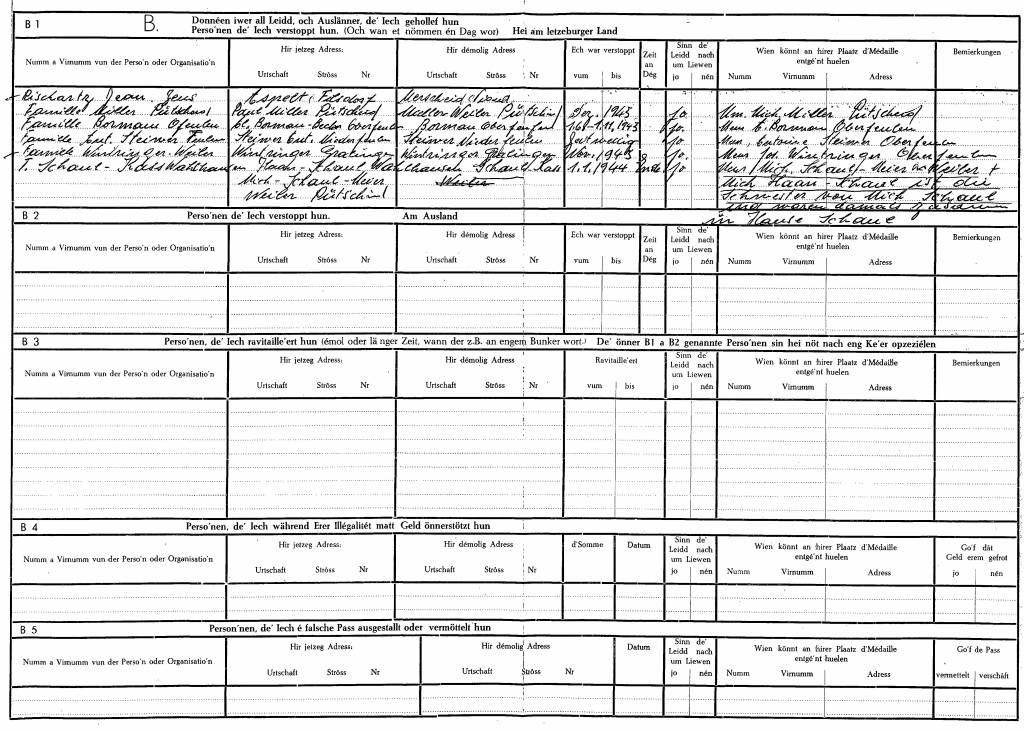 B 1 B. Donnéen iwer all Leidd, och Auslänner, de' Iech gehollef hun
Perso'nen de' Iech verstoppt hun. (Och wan et nömmen én Dag wor) Hei am letzeburger Land
Numm a Virnumm vun der Perso'n oder Organisatio'n
Hir jetzeg Adress:
Urtschaft Ströss Nr
Hir démolig Adress
Urtschaft Ströss Nr
Ech war verstoppt
vum bis
Zeit an Dég
Sinn de' Leidd nach um Liewen
jo nén
Wien könnt an hirer Plaatz d'Médaille entgé'nt huelen
Numm Virnumm Adress
Bemierkungen
Rischartz Jean Aspelt Filsdorf Merscheid
Famille Miller Pütscheid Paul Miller Pütscheid Miller Weiler Pütscheid Dez. 1943 jo Mich. Miller Pütscheid
Famille Bormann Bormann Bormann Oberfeulen 1.11.1943 jo. Bormann Oberfeulen
Famille Steiwer Feulen Steiwer Niederfeulen Steiwer Niederfeulen Zeitweilig jo Steiwer Oberfeulen
Famille Wintringer Weiler Wintringer Gralingen Wintringer Gralingen Nov. 1943 jo. Jos. Wintringer Oberfeulen
Schaul - Schaul 1.1.1944 Ende jo Mich. Schaul - Meier Weiler +
Mich - Schaul - Meier Weiler Mich Haan - Schaul ist die
Weiler Pütscheid Schwester von Mich Schaul
und waren damals
in Hause Schaul
B 2 Perso'nen de' Iech verstoppt hun. Am Ausland
Numm a Virnumm vun der Perso'n oder Organisatio'n
Hir jetzeg Adress:
Urtschaft Ströss Nr
Hir démolig Adress
Urtschaft Ströss Nr
Ech war verstoppt
vum bis
Zeit an Dég
Sinn de' Leidd nach um Liewen
jo nén
Wien könnt an hirer Plaatz d'Médaille entgé'nt huelen
Numm Virnumm Adress
Bemierkungen
B 3 Perso'nen, de' Iech ravitaille'ert hun (émol oder länger Zeit, wann der z.B. an engem Bunker wort.) De' önner B1 a B2 genannte Perso'nen sin hei nöt nach eng Ke'er opzezielen
Numm a Virnumm vun der Perso'n oder Organisatio'n
Hir jetzeg Adress:
Urtschaft Ströss Nr
Hir démolig Adress
Urtschaft Ströss Nr
Ravitaille'ert
vum bis
Sinn de' Leidd nach um Liewen
jo nén
Wien könnt an hirer Plaatz d'Médaille entgé'nt huelen
Numm Virnumm Adress
Bemierkungen
B 4 Perso'nen, de' Iech während Erer Illégalitét matt Geld önnerstötzt hun
Numm a Virnumm vun der Perso'n oder Organisatio'n
Hir jetzeg Adress:
Urtschaft Ströss Nr
Hir démolig Adress
Urtschaft Ströss Nr
d'Somme
Datum
Sinn de' Leidd nach um Liewen
jo nén
Wien könnt an hirer Plaatz d'Médaille entgé'nt huelen
Numm Virnumm Adress
Go'f dât Geld erem gefrot
jo nén
B 5 Person'nen, de' Iech é falsche Pass ausgestallt oder vermöttelt hun
Numm a Virnumm vun der Perso'n oder Organisatio'n
Hir jetzeg Adress:
Urtschaft Ströss Nr
Hir démolig Adress
Urtschaft Ströss Nr
Datum
Sinn de' Leidd nach um Liewen
jo nén
Wien könnt an hirer Plaatz d'Médaille entgé'nt huelen
Numm Virnumm Adress
Go'f de Pass
vermettelt verschâft